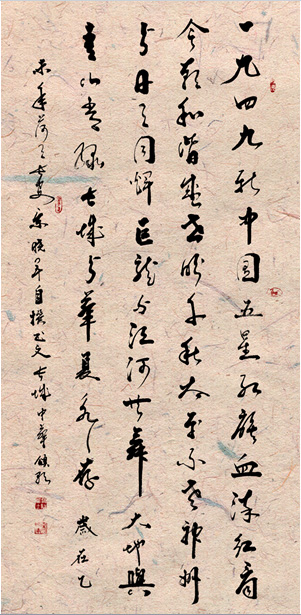 一九四九新中国五星红旗血染红看
今朝和谐盛世盼千秋太平不老神州
与日月同辉巨龙与江河共舞大地与
青山常绿长城与华夏永存 岁在乙
未年荷月 晓军自撰此文长城中华